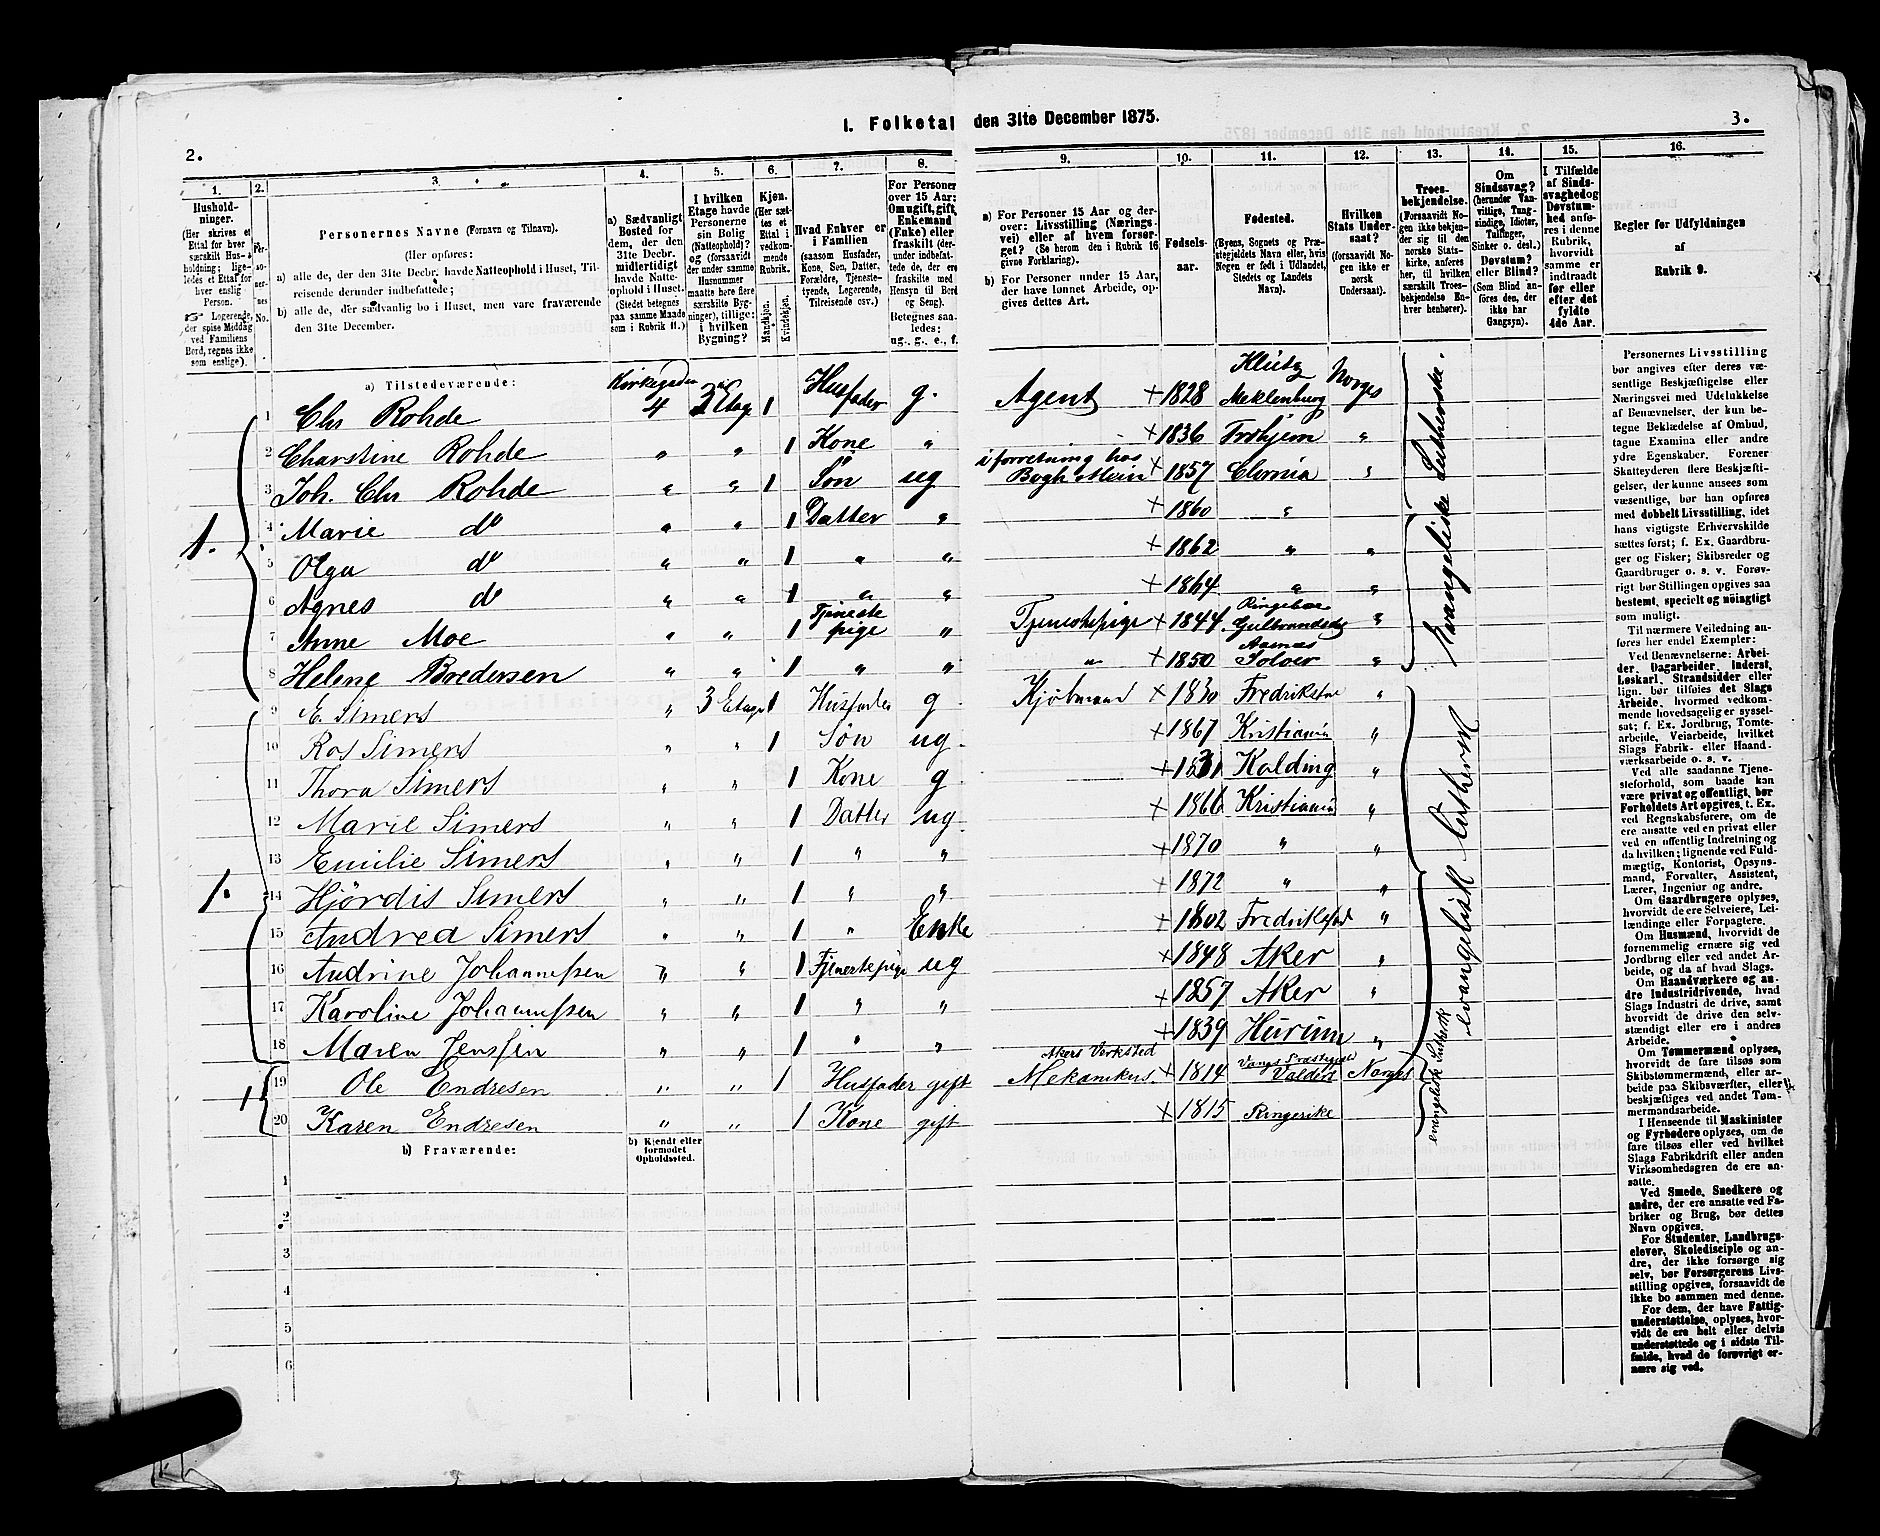 I. Folketal den 31te December 1875.
2.
3.
1. 2. 3. 4. 5. 6. 7. 8. 9. 10. 11. 12. 13. 14. 15. 16.
Husholdninger.
(Her skrives et
Ettal for hver
særskilt Husholdning;
ligeledes et Ettal for
hver enslig
Person.
Logerende,
der spise Middag
ved Familiens
Bord, regnes ikke
som enslige).
Personernes No.
Personernes Navne (Fornavn og Tilnavn).
(Her opføres:
a) alle de, der den 31te Decbr. havde Natteophold i Huset, Tilreisende derunder indbefattede;
b) alle de, der sædvanlig bo i Huset, men vare fraværende
den 31te December.
a) Sædvanligt
Bosted for
dem, der den
31te Decbr.
midlertidigt
havde Natteophold i Huset.
(Stedet betegnes
paa samme Maade
som i Rubrik 11.)
I hvilken
Etage havde
Personerne
sin Bolig
(Natteophold)?
og (forsaavidt
der under samme
Husnummer
maatte høre flere
særskilte Bygninger), tillige:
i hvilken
Bygning?
Kjøn.
(Her sættes et
Ettal i
vedkommende
Rubrik.
Mandkjøn.
Kvindekjøn.
Hvad Enhver er
i Familien
(saasom Husfader,
Kone, Søn, Datter,
Forældre, Tjenestetyende, Logerende,
Tilreisende osv.)
For Personer
over 15 Aar:
Om ugift, gift,
Enkemand
(Enke) eller
fraskilt
Betegnes saaledes:
ug., g., e., f.
a) For Personer 15 Aar og derover: Livsstilling (Næringsvei) eller af hvem forsørget? (Se herom den i Rubrik 16
givne Forklaring).
b) For Personer under 15 Aar,
der have lønnet Arbeide, opgives dettes Art.
Fødselsaar.
Fødested.
(Byens, Sognets og Præstegjeldets Navn eller, hvis
Nogen er født i Udlandet,
Stedets og Landets
Navn).
Hvilken
Stats Undersaat?
(forsaavidt Nogen ikke er
norsk
Undersaat).
Troesbekjendelse.
(Forsaavidt Nogen ikke bekjender sig til den
norske Statskirke, anføres
her, til hvilken
særskilt Troesbekjendelse Enhver henhører).
Om
Sindssvag?
(herunder Vanvittige, Tungsindige, Idioter,
Tullinger,
Sinker o. desl.)
Døvstum?
eller Blind?
(Som Blind anføres den, der
ikke har
Gangsyn).
I Tilfælde
af Sindssvaghed og
Døvstumhed anføres i denne
Rubrik,
hvorvidt
samme er
indtraadt
før eller
efter det
fyldte
4de Aar.
Regler for Udfyldningen
af
Rubrik 9.
a) Tilstedeværende:
1. 1 Chr Rohde Kirkegaden 4 2 Etage 1 Husfader g. Agent + 1828 Klütz Meklenburg Norges
2 Charstine Rohde " " 1 Kone " + 1836 Trhjem "
3 Joh. Chr Rohde " " 1 Søn ug i forretning hos + 1857 "
4 Marie do " " 1 Datter " + 1860 "
5 Olga do " " 1 " " + 1862 " "
6 Agnes do " " 1 " " + 1864 " "
7 Anne Moe " " 1 Tjeneste pige " Tjenestepige + 1844 Ringeboe "
8 Helene Bredersen " " 1 " " " + 1850 Aasnes Soløer "
Evangeliske Lutherske.
1. 9 E. Simers " 3 Etage 1 Husfader g Kjøbmand + 1830 "
10 Simers " " 1 Søn ug. + 1867 Kristiania "
11 Thora Simers " " 1 Kone g + 1831 Kolding "
12 Marie Simers " " 1 Datter ug. + 1866 Kristiania "
13 Emilie Simers " " 1 " " + 1870 " "
14 Hjördis Simers " " 1 " " + 1872 " "
15 Andrea Simers " " 1 " Enke + 1802 Fredrikstad "
16 Andrine Johannesen " " 1 Tjenestepige ug + 1848 Aker "
17 Karoline Johannesen " " 1 " " + 1857 Aker "
18 Maren Jenssen " " 1 " " + 1839 Hurum "
evangelisk luthersk
1 19 Ole Endresen " " 1 Husfader gift Akers Verksted Mekanikus. + 1814 Valders Norges
20 Karen Endresen " " 1 Kone gift + 1815 Ringerike
evangelisk Luthersk
b) Fraværende:
b) Kjendt eller
formodet
Opholdssted.
1
2
3
4
5
6
Personernes Livsstilling
bør angives efter deres væsentlige Beskjæftigelse eller
Næringsvei med Udelukkelse
af Benævnelser, der kun betegne Beklædelse af Ombud,
tagne Examina eller andre
ydre Egenskaber. Forener
Skatteyderen flere Beskjæftigelser, der kunne ansees som
væsentlige, bør han opføres
med dobbelt Livsstilling, idet
hans vigtigste Erhvervskilde
sættes først; f. Ex. Gaardbruger og Fisker; Skibsreder og
Gaardbruger o. s. v. Forøvrigt bør Stillingen opgives saa
bestemt, specielt og nøiagtigt
som muligt.
Til nærmere Veiledning anføres her endel Exempler:
Ved Benævnelserne: Arbeider, Dagarbeider, Inderst,
Løskarl, Strandsidder eller
lign. bør tilføies det Slags
Arbeide, hvormed vedkommende hovedsagelig er sysselsat; f. Ex. Jordbrug, Tomtearbeide, Veiarbeide, hvilket
Slags Fabrik- eller Haandværksarbeide o. s. v.
Ved alle saadanne Tjenesteforhold, som baade kan
være privat og offentligt, bør
Forholdets Art opgives, t. Ex.
ved Regnskabsførere, om de
ere ansatte ved en privat eller
ved en offentlig Indretning og
da hvilken; lignende ved Fuldmægtig, Kontorist, Opsynsmand, Forvalter, Assistent,
Lærer, Ingeniør og andre.
Om Gaardbrugere oplyses,
hvorvidt de ere Selveiere, Leilændinge eller Forpagtere.
Om Husmænd, hvorvidt de
fornemmelig ernære sig ved
Jordbrug eller ved andet Arbeide, og da af hvad Slags.
Om Haandværkere og andre Industridrivende, hvad
Slags Industri de drive, samt
hvorvidt de drive den selvstændigt eller ere i andres
Arbeide.
Om Tømmermænd oplyses,
hvorvidt de fare tilsøs som
Skibstømmermænd, eller arbeide paa Skibsværfter, eller
beskjæftiges ved andet Tømmermandsarbeide.
I Henseende til Maskinister
og Fyrbødere oplyses, om de
fare tilsøs eller ved hvilket
Slags Fabrikdrift eller anden
Virksomhedsgren de ere ansatte.
Ved Smede, Snedkere og
andre, der ere ansatte ved Fabriker og Brug, bør dettes
Navn opgives.
For Studenter, Landbrugselever, Skoledisciple og andre, der ikke forsørge sig
selv, bør Forsørgerens Livsstilling opgives, forsaavidt de
ikke bo sammen med denne.
For dem, der have Fattigunderstøttelse, oplyses, hvorvidt de ere helt eller delvis
understøttede og i sidste Tilfælde, hvad de forøvrigt ernære sig ved.